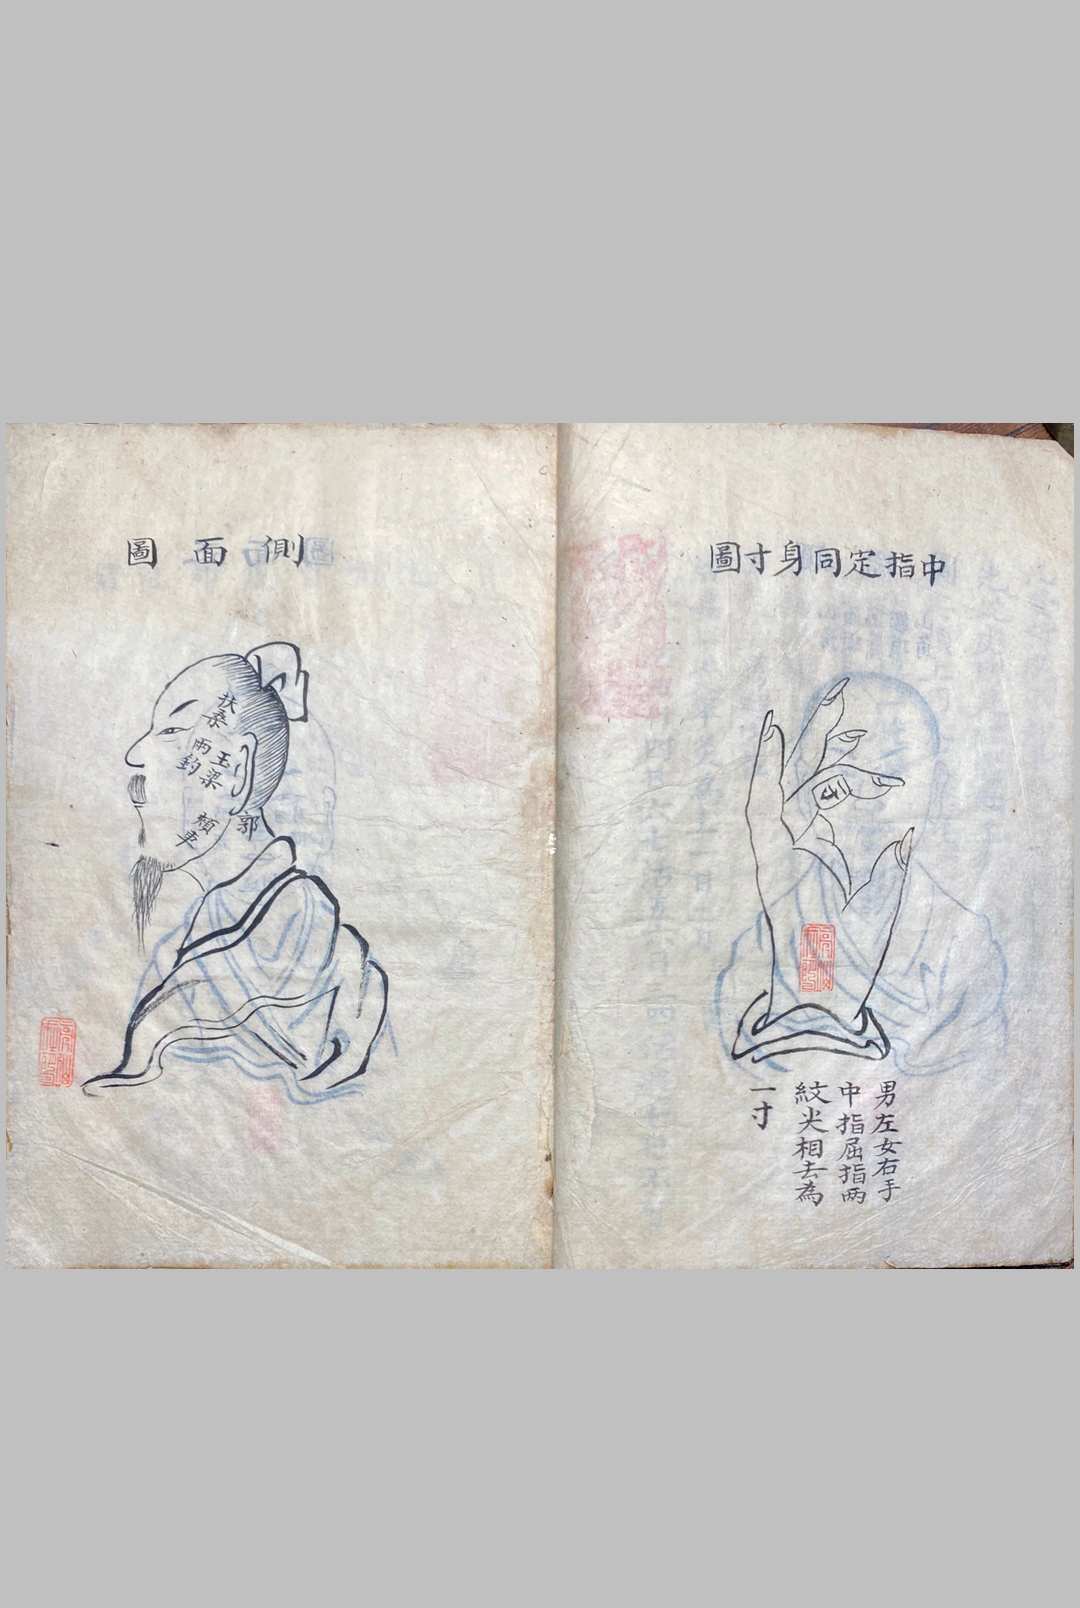 中指定同身寸圖
男左女右手
中指屈指兩
紋尖相去為
一寸
側面圖
扶桑
玉梁
兩鈎
頰車
郭